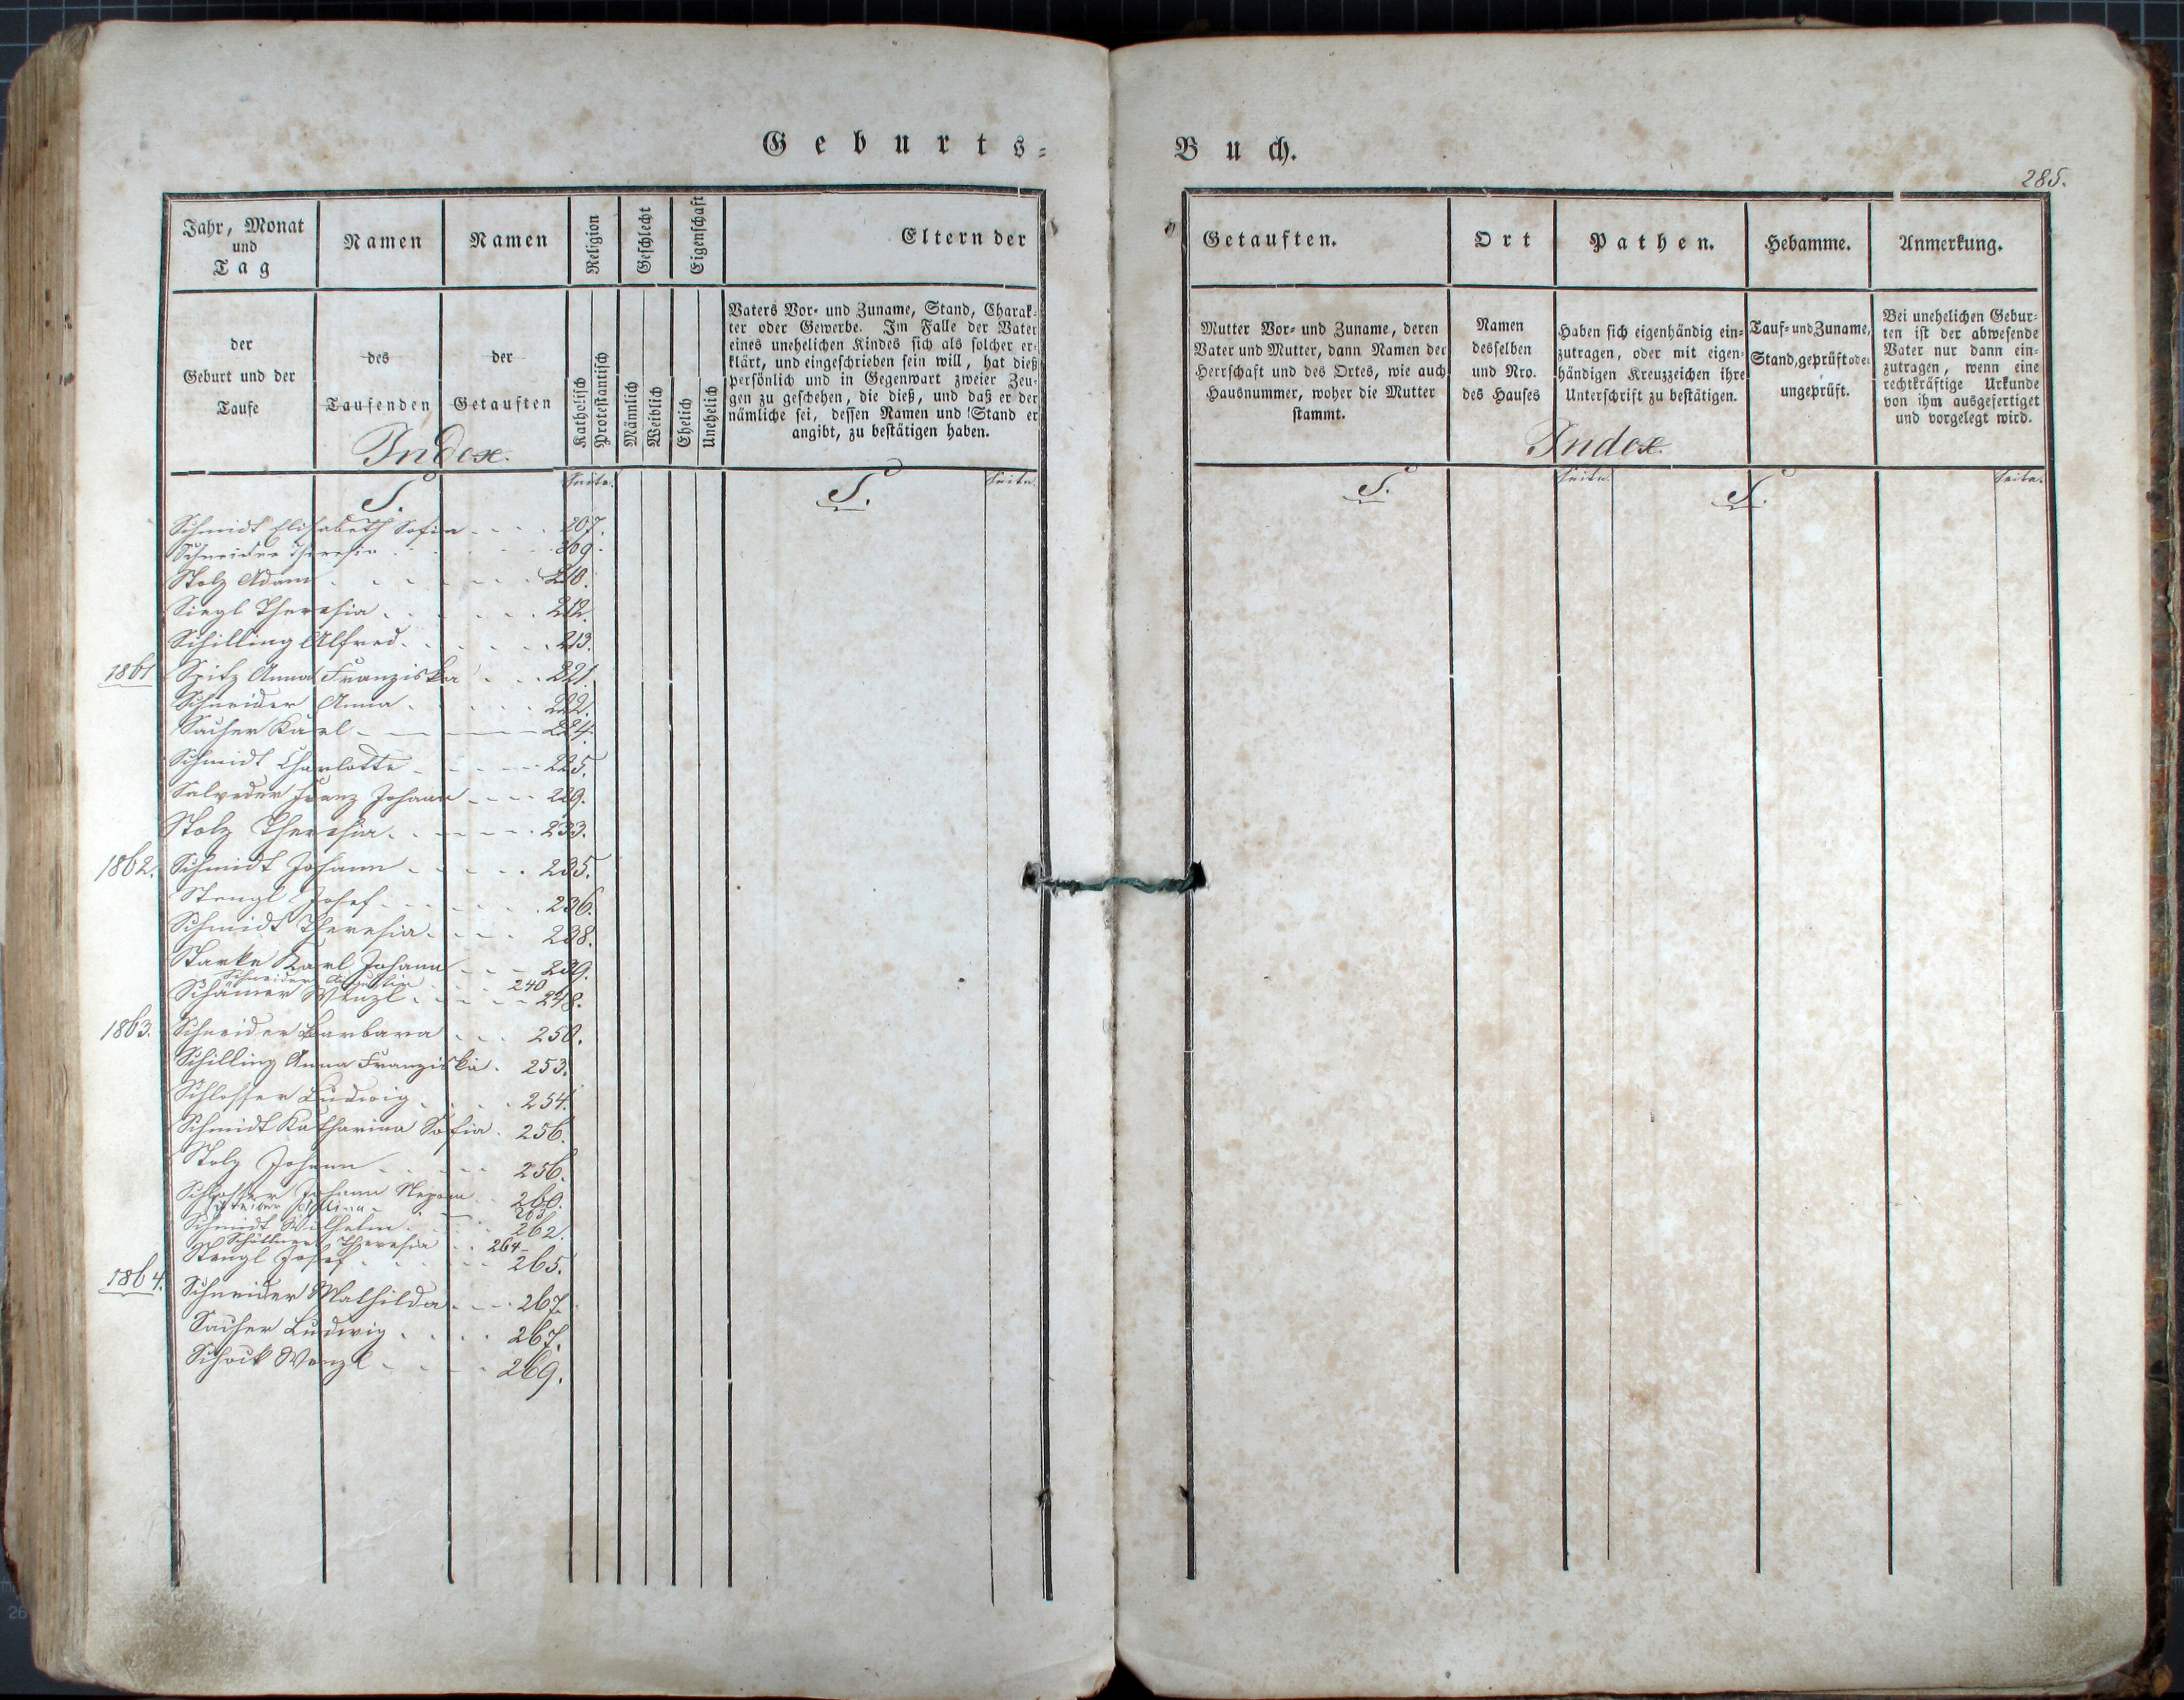 Geburts-
Jahr, Monat
und
Tag
Namen
Namen
Religion
Geschlecht
Eigenschaft
Eltern der
der
Geburt und der
Taufe
des
Taufenden
der
Getauften
Katholisch
Protestantisch
Männlich
Weiblich
Ehelich
Unehelich
Vaters Vor- und Zuname, Stand, Charak-
ter oder Gewerbe. Im Falle der Vater
eines unehelichen Kindes sich als solcher er-
klärt, und eingeschrieben sein will, hat dieß
persönlich und in Gegenwart zweier Zeu-
gen zu geschehen, die dieß, und daß er der
nämliche sei, dessen Namen und Stand er
angibt, zu bestätigen haben.
Index.
Seite.
S.
S.
Seite.
Schmidt Elisabeth Sofia 207.
Schneider Theresia 209.
Stolz Adam 210.
Siegl Theresia 212.
Schilling Alfred 213.
1861 Seitz Anna Franziska 221.
Schneider Anna 222.
Sacher Karl 224.
Schmidt Charlotte 225.
Franz Johann 229.
Stolz Theresia 233.
1862. Schmidt Johann 235.
Stengl Josef 236.
Schmidt Theresia 238.
Starke Karl Johann 239.
Schneider 240
Wenzl 248.
1863. Schneider Barbara 250.
Schilling Anna Franziska 253.
Schlosser Ludwig 254.
Schmidt Katharina Sofia 256.
Stolz Johann 256.
Schlosser Johann Nepom 260.
263
Schmidt Wilhelm 262.
Theresia 264
Stengl Josef 265.
1864. Schneider Mathilda 267.
Sacher Ludwig 267.
Schock Wenzl 269.
Buch.
285.
Getauften.
Ort
Pathen.
Hebamme.
Anmerkung.
Mutter Vor- und Zuname, deren
Vater und Mutter, dann Namen der
Herrschaft und des Ortes, wie auch
Hausnummer, woher die Mutter
stammt.
Namen
desselben
und Nro.
des Hauses
Haben sich eigenhändig ein-
zutragen, oder mit eigen-
händigen Kreuzzeichen ihre
Unterschrift zu bestätigen.
Tauf- und Zuname,
Stand, geprüft oder
ungeprüft.
Bei unehelichen Gebur-
ten ist der abwesende
Vater nur dann ein-
zutragen, wenn eine
rechtkräftige Urkunde
von ihm ausgefertiget
und vorgelegt wird.
Index.
S.
Seite.
S.
Seite.